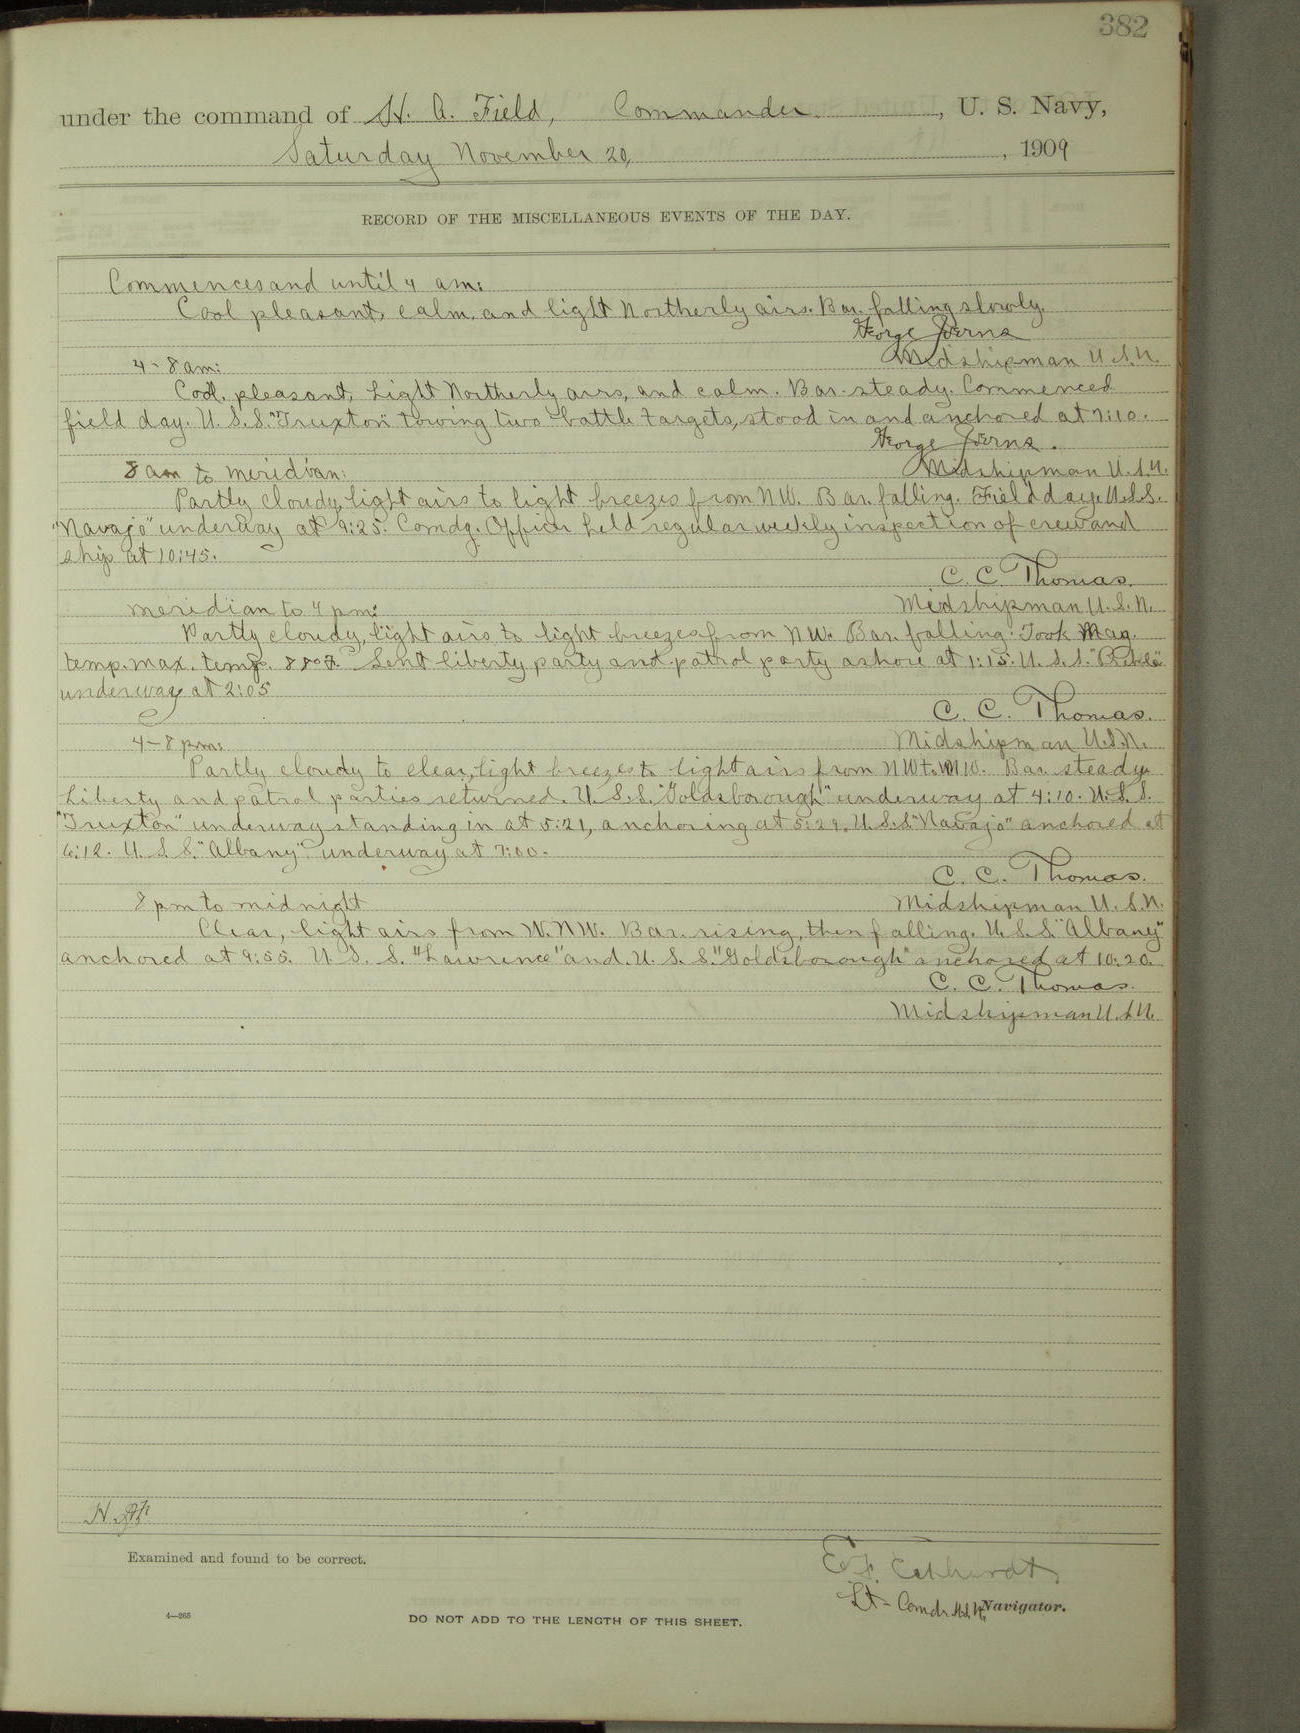 382
under the command of H. A. Field, Commander, U. S. Navy,
Saturday November 20, , 1909
RECORD OF THE MISCELLANEOUS EVENTS OF THE DAY.
Commences and until 4 am:
Cool pleasant, calm, and light Northerly airs. Bar. falling slowly.
George Joerns
Midshipman U.S.N.
4-8 am:
Cool, pleasant, light Northerly airs, and calm. Bar. steady. Commenced
field day. U.S.S. "Truxton" towing two battle targets, stood in and anchored at 7:10.
George Joerns.
Midshipman U.S.N.
8 am to meridian:
Partly cloudy, light airs to light breezes from NW. Bar. falling. Field day. U.S.S.
"Navajo" underway at 9:25. Comdg. Officer held regular weekly inspection of crew and
ship at 10:45.
C. C. Thomas.
Midshipman U.S.N.
meridian to 4 pm:
Partly cloudy, light airs to light breezes from NW. Bar. falling. Took Mag.
temp. max. temp. Sent liberty party and patrol party ashore at 1:15. U.S.S.
underway at 2:05
C. C. Thomas.
Midshipman U.S.N.
4-8 pm:
Partly cloudy to clear, light breezes to light airs from NW to WNW. Bar. steady.
Liberty and patrol parties returned. U.S.S. "Goldsborough" underway at 4:10. U.S.S.
"Truxton" underway standing in at 5:21, anchoring at 5:29. U.S.S. "Navajo" anchored at
6:12. U.S.S. "Albany" underway at 7:00.
C. C. Thomas.
Midshipman U.S.N.
8 pm to midnight
Clear, light airs from W.NW. Bar. rising, then falling. U.S.S. "Albany"
anchored at 9:55. U.S.S. "Lawrence" and U.S.S. "Goldsborough" anchored at 10:20.
C. C. Thomas.
Midshipman U.S.N.
H.A.F.
Examined and found to be correct.
E. F. Eckhardt
Lt-Comdr. U.S.N. Navigator.
4—265
DO NOT ADD TO THE LENGTH OF THIS SHEET.